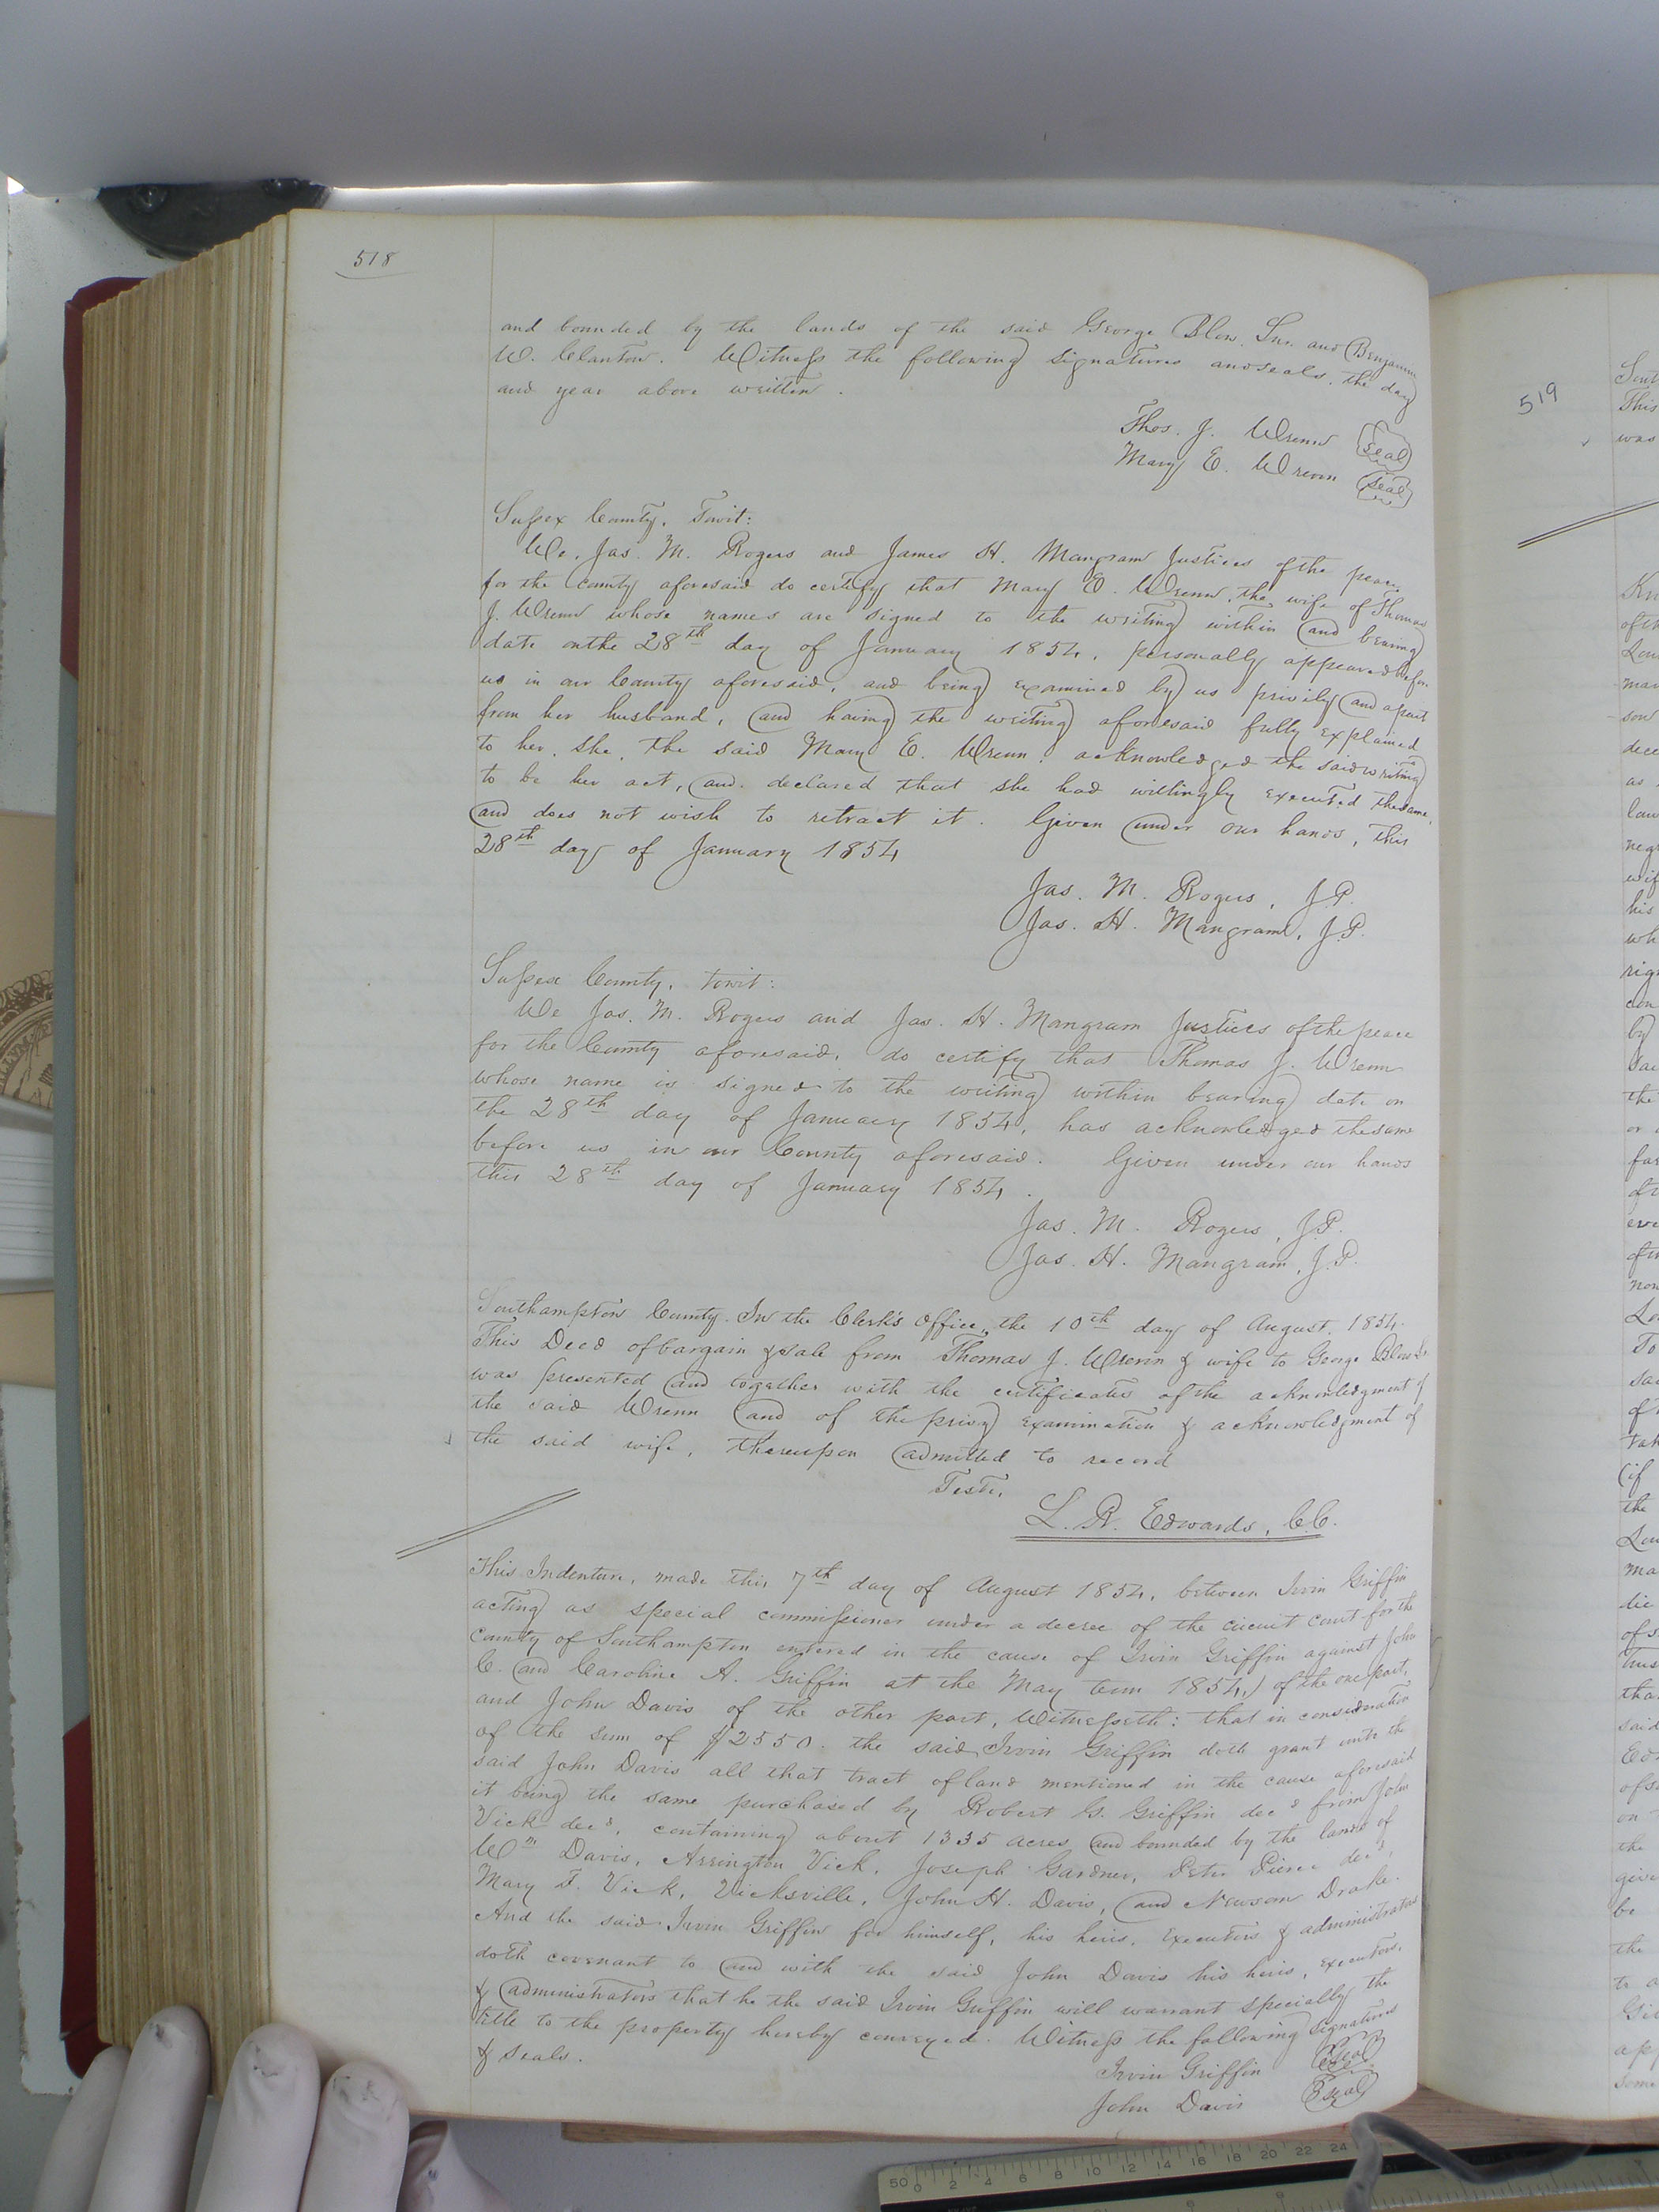 518
and bounded by the lands of the said George Blow, Snr. and Benjamin
W. Clanton. Witness the following signatures and seals, the day
and year above written.
Thos. J. Wrenn (seal)
Mary E. Wrenn (seal)
Sussex County, Towit:
We, Jas. M. Rogers and James H. Mangram Justices of the peace
for the County aforesaid do certify that Mary E. Wrenn, the wife of Thomas
J. Wrenn whose names are signed to the writing within and bearing
date on the 28th day of January 1854, personally appeared before
us in our County aforesaid, and being examined by us privily and apart
from her husband, and having the writing aforesaid fully explained
to her, she, the said Mary E. Wrenn, acknowledged the said writing
to be her act, and declared that she had willingly executed the same,
and does not wish to retract it. Given under our hands, this
28th day of January 1854
Jas. M. Rogers, J.P.
Jas. H. Mangram, J.P.
Sussex County, towit:
We Jas. M. Rogers and Jas. H. Mangram Justices of the peace
for the County aforesaid, do certify that Thomas J. Wrenn
whose name is signed to the writing within bearing date on
the 28th day of January 1854, has acknowledged the same
before us in our County aforesaid. Given under our hands
this 28th day of January 1854.
Jas. M. Rogers, J.P.
Jas. H. Mangram, J.P.
Southampton County. In the Clerk's Office, the 10th day of August, 1854.
This Deed of bargain & sale from Thomas J. Wrenn & wife to George Blow Sr
was presented and together with the certificates of the acknowledgment of
the said Wrenn and of the privy examination & acknowledgment of
the said wife, thereupon admitted to record
Teste,
L. R. Edwards, C.C.
This Indenture, made this 7th day of August 1854, between Irvin Griffin
acting as special commissioner under a decree of the circuit court for the
County of Southampton entered in the cause of Irvin Griffin against John
C. and Caroline A. Griffin at the May term 1854,) of the one part,
and John Davis of the other part, Witnesseth: that in consideration
of the sum of $2550. the said Irvin Griffin doth grant unto the
said John Davis all that tract of land mentioned in the cause aforesaid
it being the same purchased by Robert G. Griffin decd from John
Vick decd, containing about 1335 acres and bounded by the lands of
Wm Davis, Arrington Vick, Joseph Gardner, Peter Pierce decd,
Mary F. Vick, Vicksville, John H. Davis, and Newsom Drake.
And the said Irvin Griffin for himself, his heirs, executors & administrators
doth covenant to and with the said John Davis his heirs, executors,
& administrators that he the said Irvin Griffin will warrant specially the
title to the property hereby conveyed. Witness the following signatures
& seals.
Irvin Griffin (seal)
John Davis (seal)
519
This
was